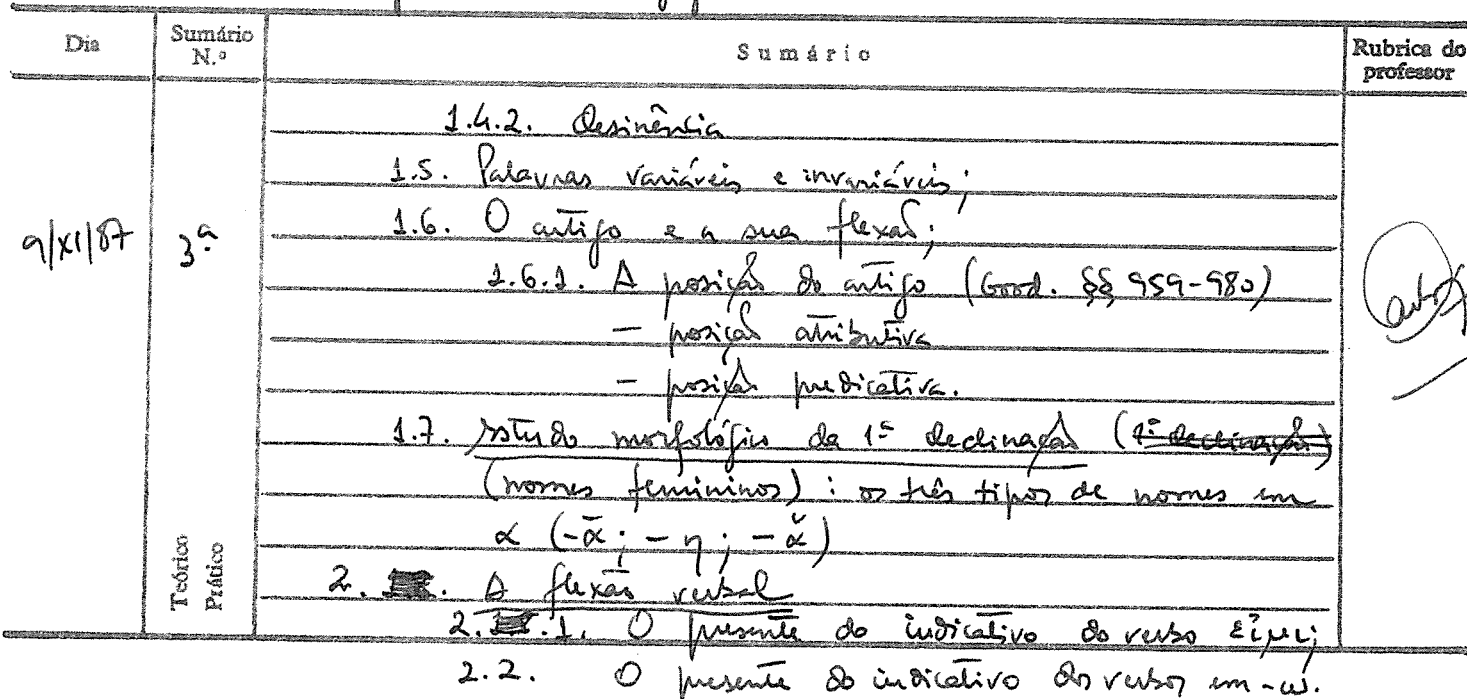 Dia Sumário N.º Sumário Rubrica do professor
1.4.2. Desinência
1.5. Palavras variáveis e invariáveis;
9/XI/87 3ª 1.6. O artigo e a sua flexão;
1.6.1. A posição do artigo (Good. §§ 959-980)
— posição atributiva
— posição predicativa.
1.7. Estudo morfológico da 1ª declinação (1ª declinação)
(nomes femininos) : os três tipos de nomes em
α (-ᾱ ; - η ; - ᾰ)
Teórico Prático
2. A flexão verbal
2.1. O presente do indicativo do verbo εἰμι;
2.2. O presente do indicativo dos verbos em -ω.